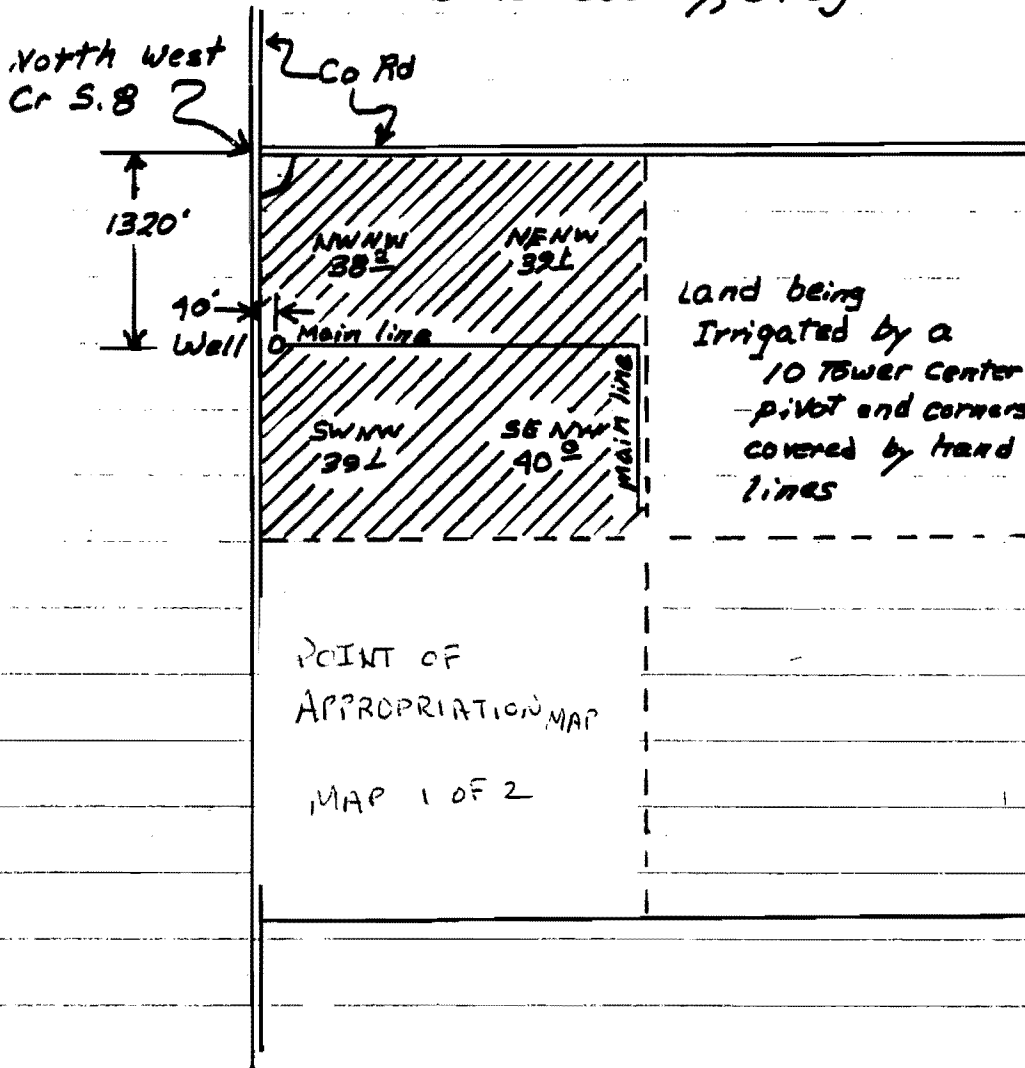 North West
Cr S.8
Co Rd
1320'
NWNW
38
NENW
39
40'
Well
Main line
SWNW
39
SE NW
40
main line
Land being
Irrigated by a
10 Tower Center
pivot and corners
covered by hand
lines
POINT OF
APPROPRIATION MAP
MAP 1 OF 2